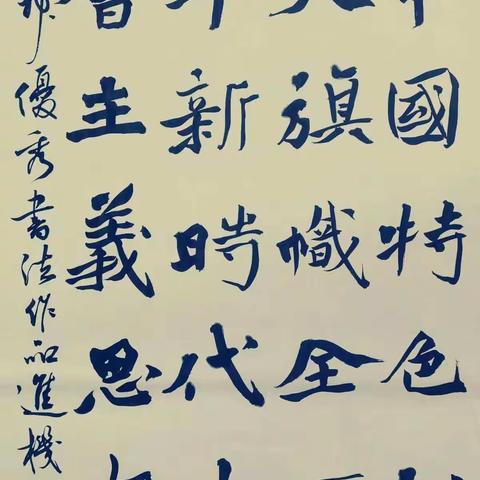 國特色
旗幟全
新時代
主義思
優秀書法作品進機